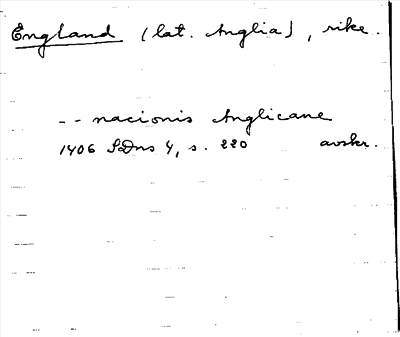 England (lat. Anglia), rike.
-- nacionis Anglicane
1406 SDns 4, s. 220 avskr.